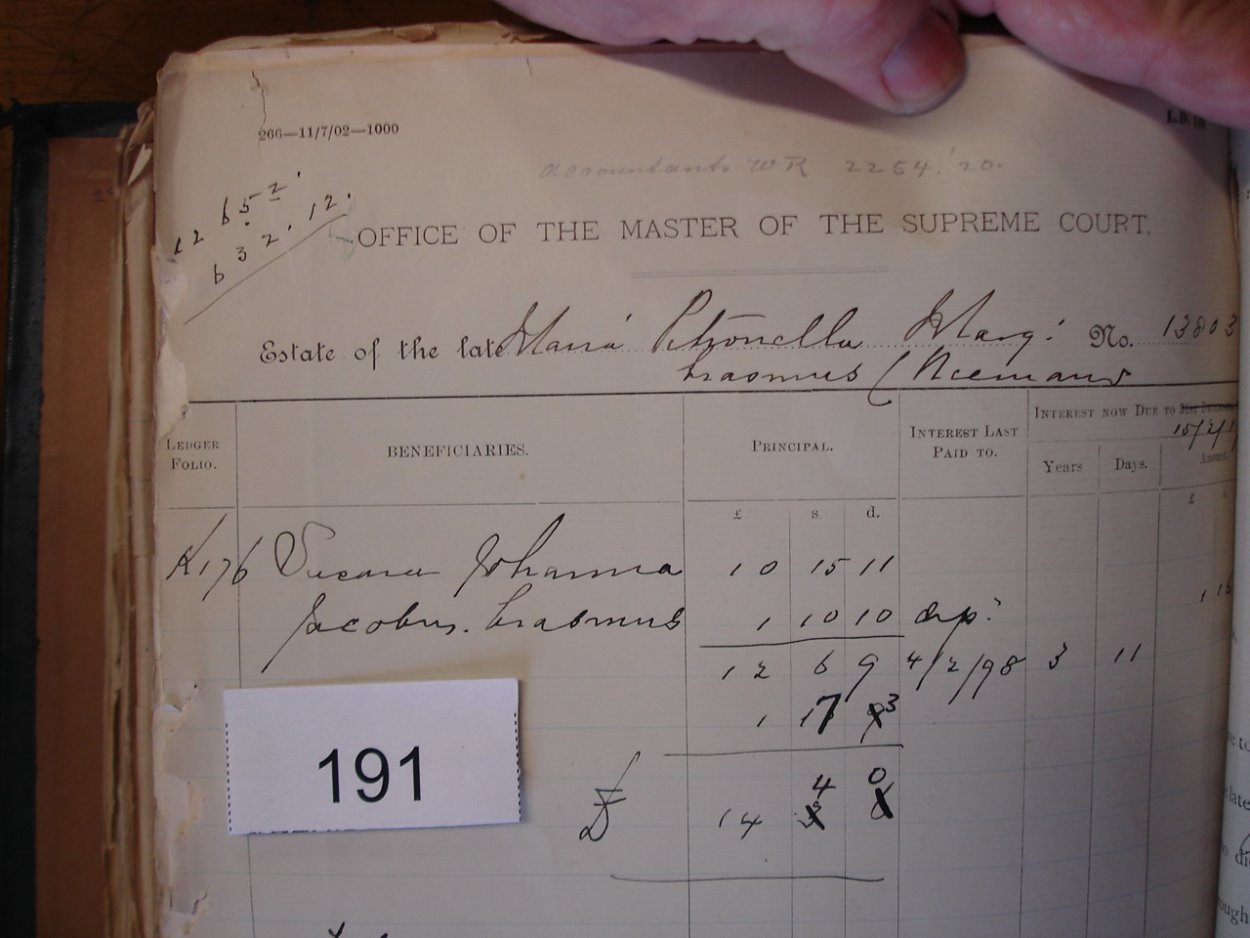 266—11/7/02—1000
L.D.
accountants WR 2254/20.
12 65 2.
6 3 2. 12.
OFFICE OF THE MASTER OF THE SUPREME COURT,
Estate of the late Maria Petronella Marg: No. 13803
Erasmus (Niemand
LEDGER FOLIO.
BENEFICIARIES.
PRINCIPAL.
INTEREST LAST PAID TO.
INTEREST NOW DUE TO 31st
15/2/1
Years
Days.
Amount
£ s. d.
£
K176 Susana Johanna 10 15 11
Jacobus. Erasmus 1 10 10 dep:
12 6 9 4/2/98 3 11
1 17 3
4 0
£ 14
191